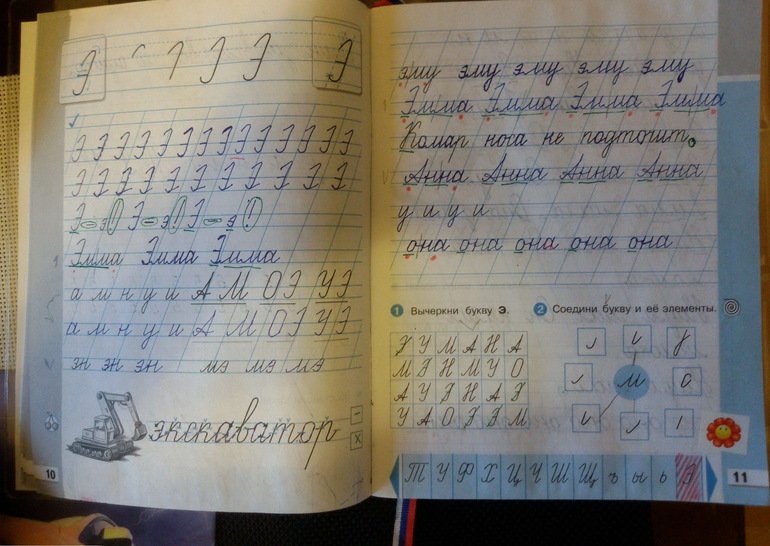 Э Э Э Э
Э Э Э Э Э Э Э Э Э Э Э Э Э Э
Э Э Э Э Э Э Э Э Э Э Э Э Э
Э – э! Э – э! Э – э!
Эмма Эмма Эмма
а м н у и А М О Э У Э
а м н у и А М О Э У Э
эн эн эн мэ мэ мэ
экскаватор
10
эму эму эму эму эму
Эмма Эмма Эмма Эмма
Комар носа не подточит.
Анна Анна Анна Анна
у и у и
она она она она она
1 Вычеркни букву Э.
Э У М А Н А
М Э Н М У О
А У Э Н А Э
У А О Э Э М
2 Соедини букву и её элементы.
м
Т У Ф Х Ц Ч Ш Щ ъ ы ь Э
11